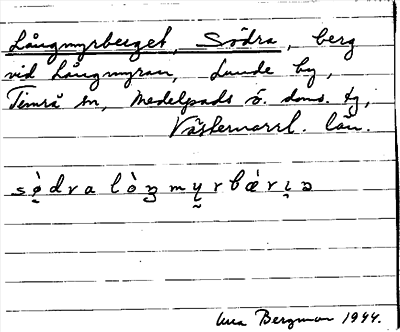 Långmyrberget, Södra, berg
vid Långmyran, Lunde by,
Timrå sn, Medelpads ö. doms. tg,
Västernorrl. län.
sö̀dra lòŋmy̬rbæ̀rɩ̣ɔ
Bergman 1944.